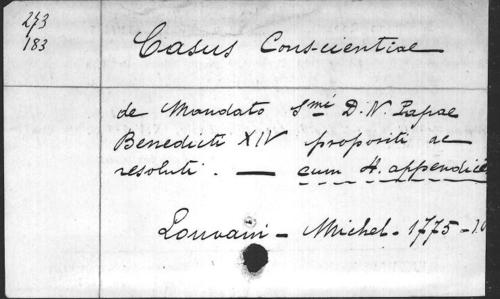 243
183
Casus Conscientiae
de Mandato Smi D. N. Papae
Benedicti XIV propositi ac
resoluti. — cum 4. appendice
Louvain - Michel - 1775 -